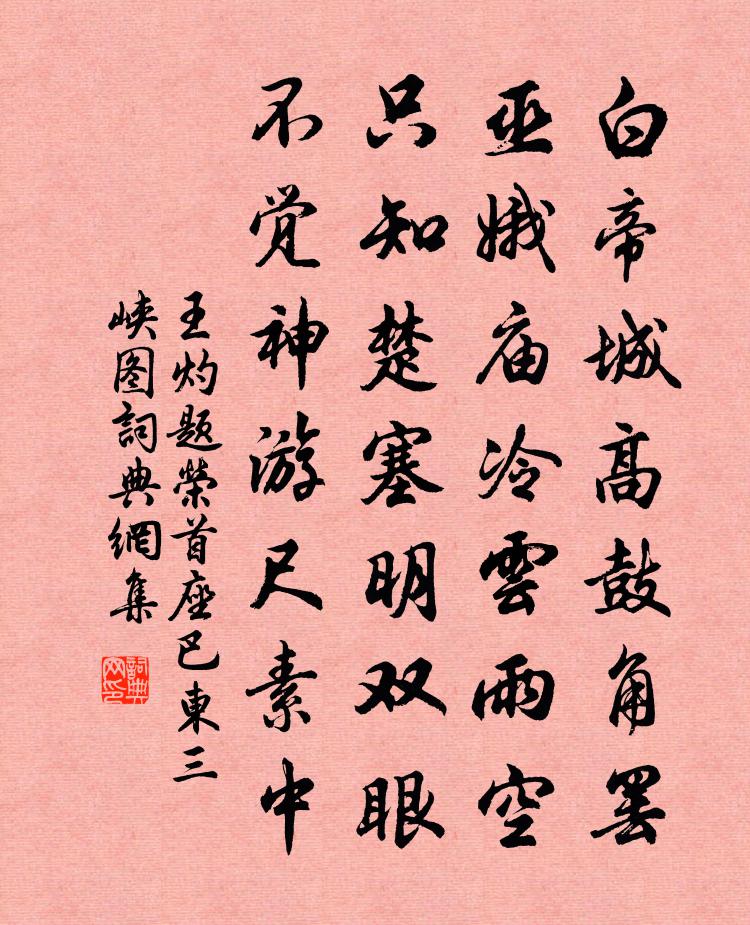 白帝城高鼓角罢
巫娥庙冷雲雨空
只知楚塞明双眼
不觉神游尺素中
王灼题榮首座巴東三
峡图詞典網集
詞典网印